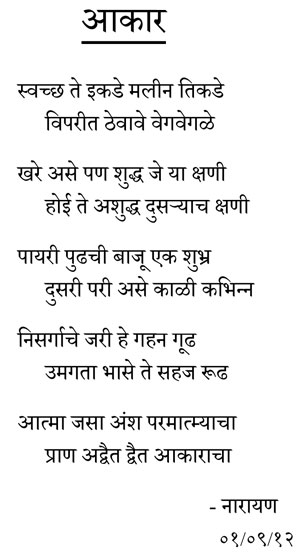 आकार
स्वच्छ ते इकडे मलीन तिकडे
विपरीत ठेवावे वेगवेगळे
खरे असे पण शुद्ध जे या क्षणी
होई ते अशुद्ध दुसऱ्याच क्षणी
पायरी पुढची बाजू एक शुभ्र
दुसरी परी असे काळी कभिन्न
निसर्गाचे जरी हे गहन गूढ
उमगता भासे ते सहज रूढ
आत्मा जसा अंश परमात्म्याचा
प्राण अद्वैत द्वैत आकाराचा
- नारायण
०१/०९/१२